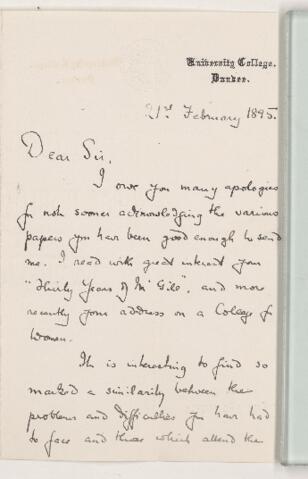 University College,
Dundee.
21st February 1895.
Dear Sir,
I owe you many apologies
for not sooner acknowledging the various
papers you have been good enough to send
me. I read with great interest your
"Thirty Years of McGill", and more
recently your address on a College for
Women.
It is interesting to find so
marked a similarity between the
problems and difficulties you have had
to face and those which attend the